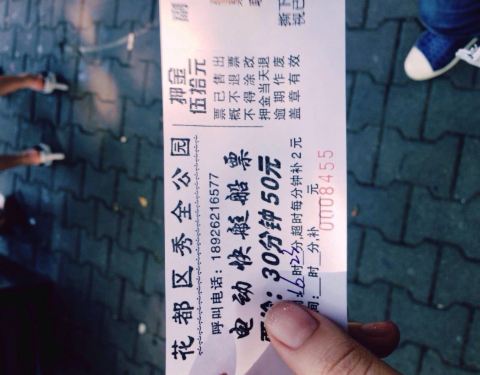 花都区秀全公园
呼叫电话：18926216577
电动快艇船票
30分钟 50元
时23分,超时每分钟补2元
时 分,补 元
0008455
押金
伍拾元
票已售出
概不退票
不得涂改
押金当天退
逾期作废
盖章有效
撕下
视已